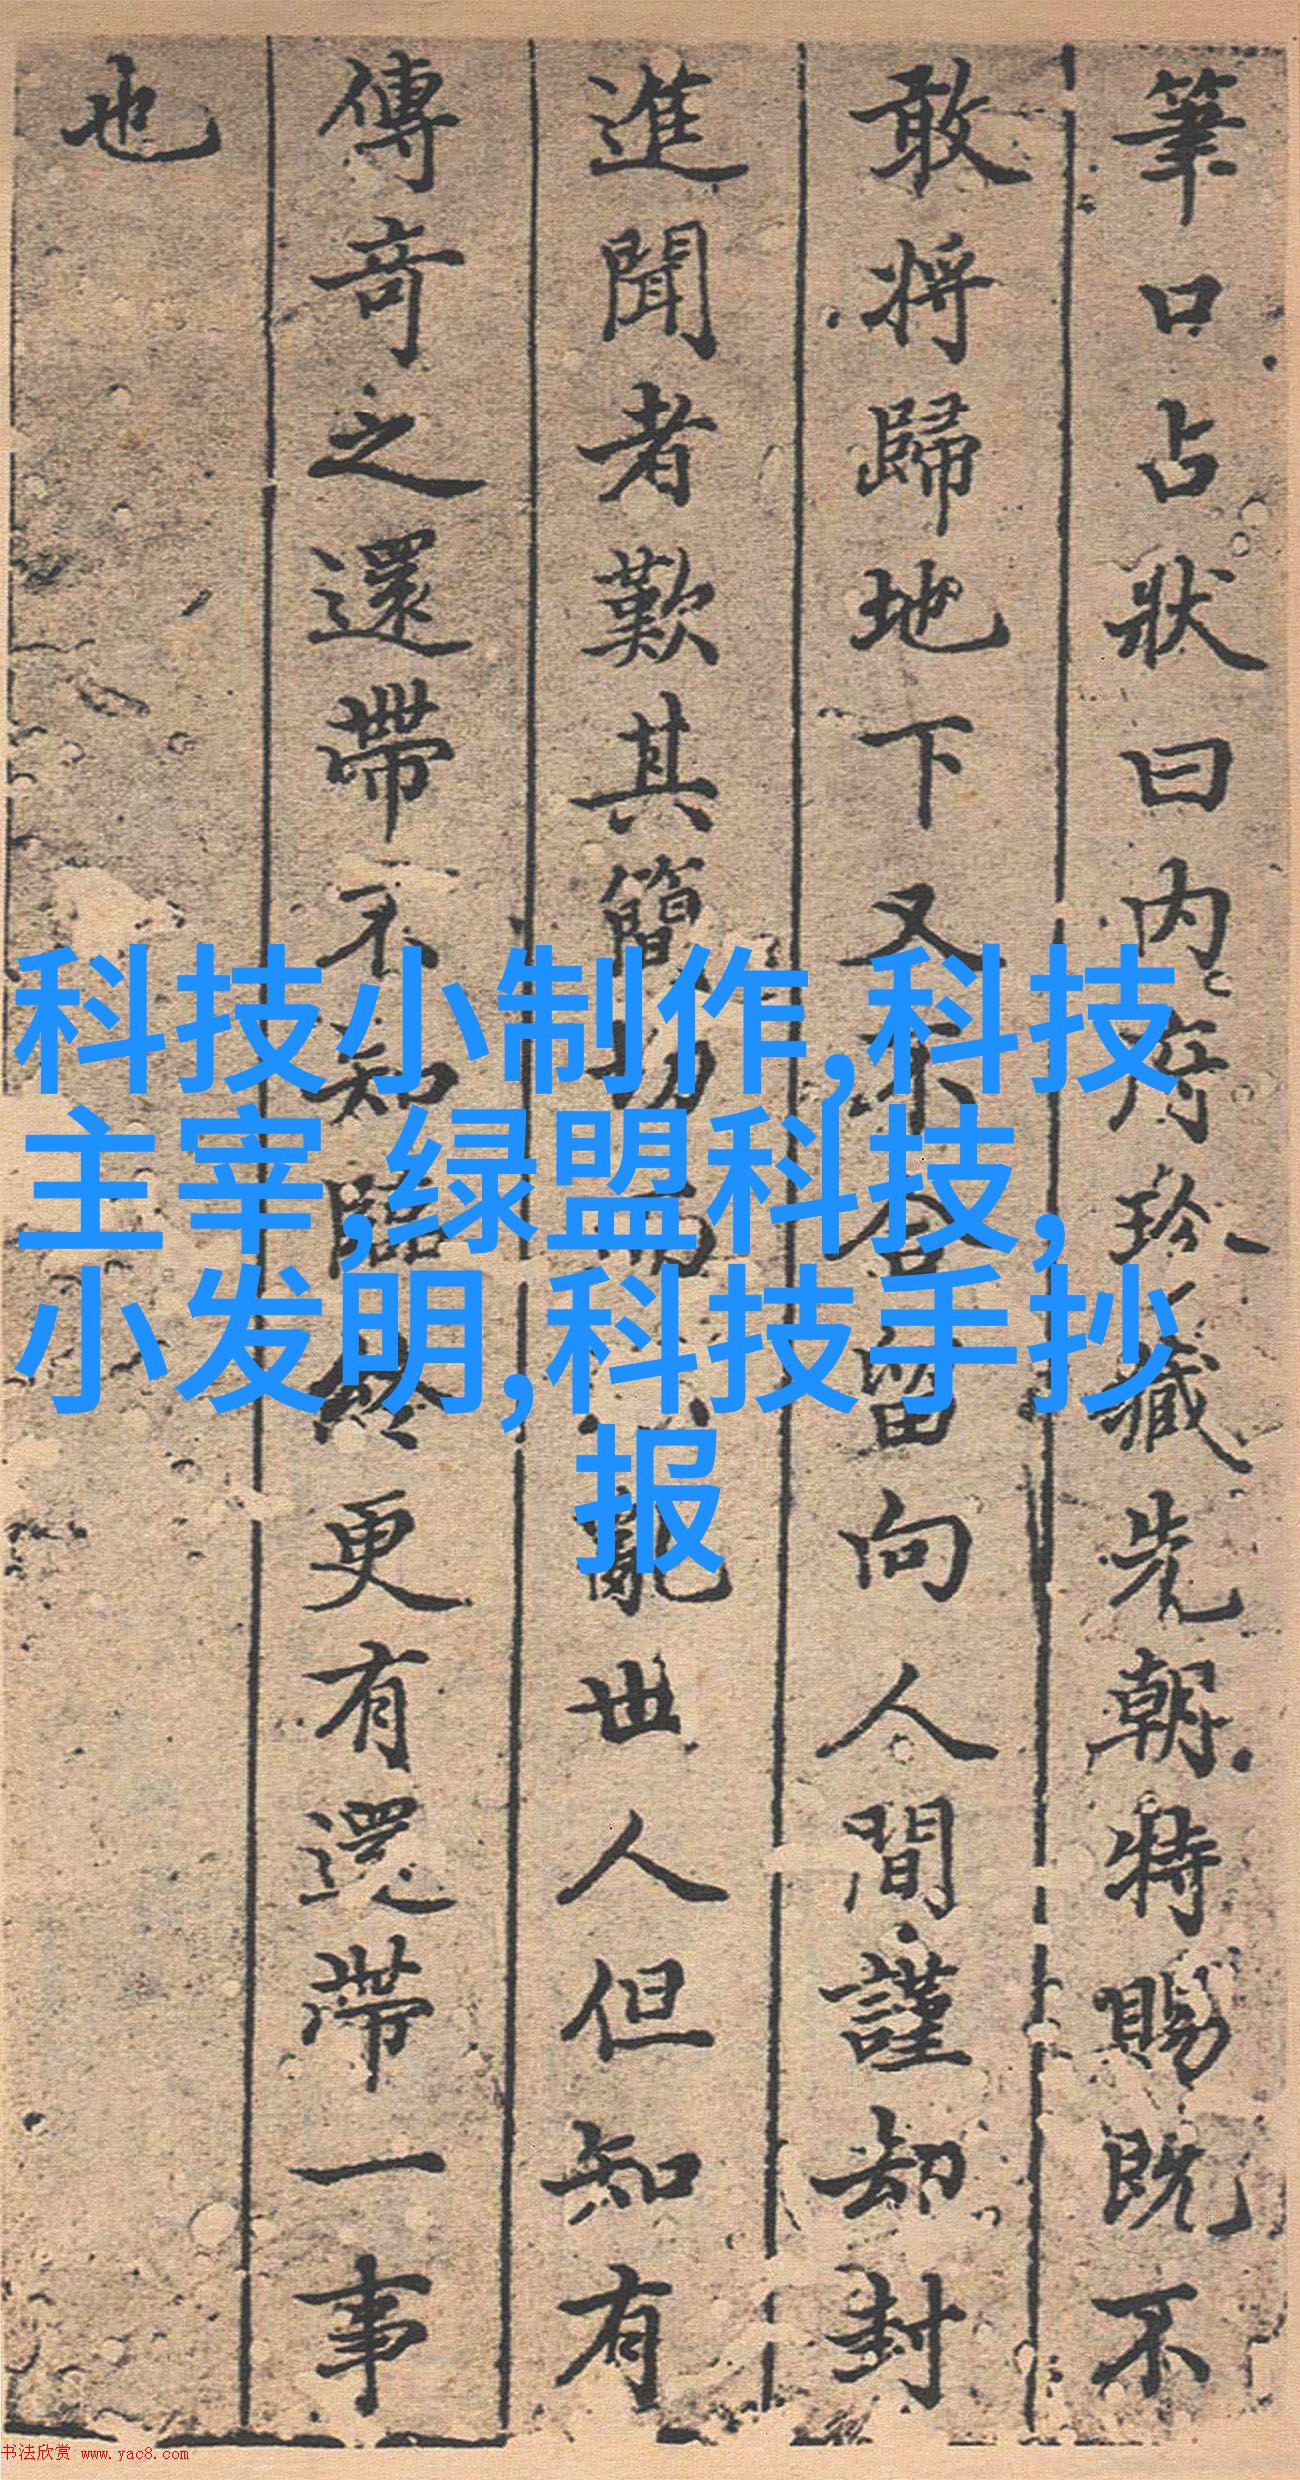 筆口占狀曰内府珍藏先朝特賜既不
敢將歸地下又不合留向人間謹却封
進聞者歎其簡切而
亂世人但知有
傳奇之還帶不知臨終更有還帶一事
也
科技小制作,科技
主宰,绿盟科技,
小发明,科技手抄
报
书法欣赏 www.yac8.com